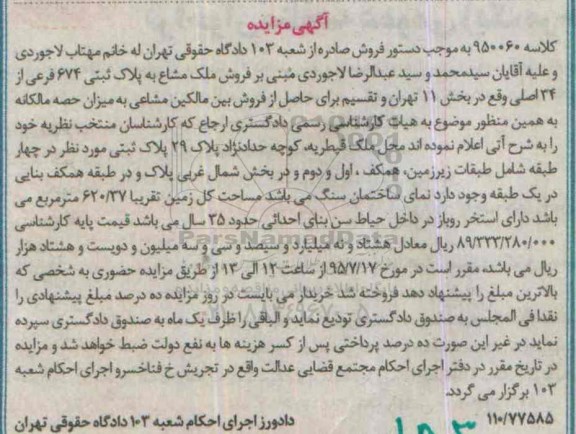 آگهی مزایده
کلاسه ۹۵۰۰۶۰ به موجب دستور فروش صادره از شعبه ۱۰۳ دادگاه حقوقی تهران له خانم مهتاب لاجوردی
و علیه آقایان سیدمحمد و سید عبدالرضا لاجوردی مبنی بر فروش ملک مشاع به پلاک ثبتی ۶۷۴ فرعی از
۳۴ اصلی وقع در بخش ۱۱ تهران و تقسیم برای حاصل از فروش بین مالکین مشاعی به میزان حصه مالکانه
به همین منظور موضوع به هیات کارشناسی رسمی دادگستری ارجاع که کارشناسان منتخب نظریه خود
را به شرح آتی اعلام نموده اند محل ملک قیطریه، کوچه حدادنژاد پلاک ۲۹ پلاک ثبتی مورد نظر در چهار
طبقه شامل طبقات زیرزمین، همکف ، اول و دوم و در بخش شمال غربی پلاک و در طبقه همکف بنایی
در یک طبقه وجود دارد نمای ساختمان سنگ می باشد مساحت کل زمین تقریبا ۶۲۰/۳۷ مترمربع می
باشد دارای استخر روباز در داخل حیاط سن بنای احداثی حدود ۳۵ سال می باشد قیمت پایه کارشناسی
۸۹/۳۳۳/۲۸۰/۰۰۰ ریال معادل هشتاد و نه میلیارد و سیصد و سی و سه میلیون و دویست و هشتاد هزار
ریال می باشد، مقرر است در مورخ ۹۵/۷/۱۷ از ساعت ۱۲ الی ۱۳ از طریق مزایده حضوری به شخصی که
بالاترین مبلغ را پیشنهاد دهد فروخته شد خریدار می بایست در روز مزایده ده درصد مبلغ پیشنهادی را
نقدا فی المجلس به صندوق دادگستری تودیع نماید و الباقی را ظرف یک ماه به صندوق دادگستری سپرده
نماید در غیر این صورت ده درصد پرداختی پس از کسر هزینه ها به نفع دولت ضبط خواهد شد و مزایده
در تاریخ مقرر در دفتر اجرای احکام مجتمع قضایی عدالت واقع در تجریش خ فناخسرو اجرای احکام شعبه
۱۰۳ برگزار می گردد.
۱۱۰/۷۷۵۸۵ دادورز اجرای احکام شعبه ۱۰۳ دادگاه حقوقی تهران